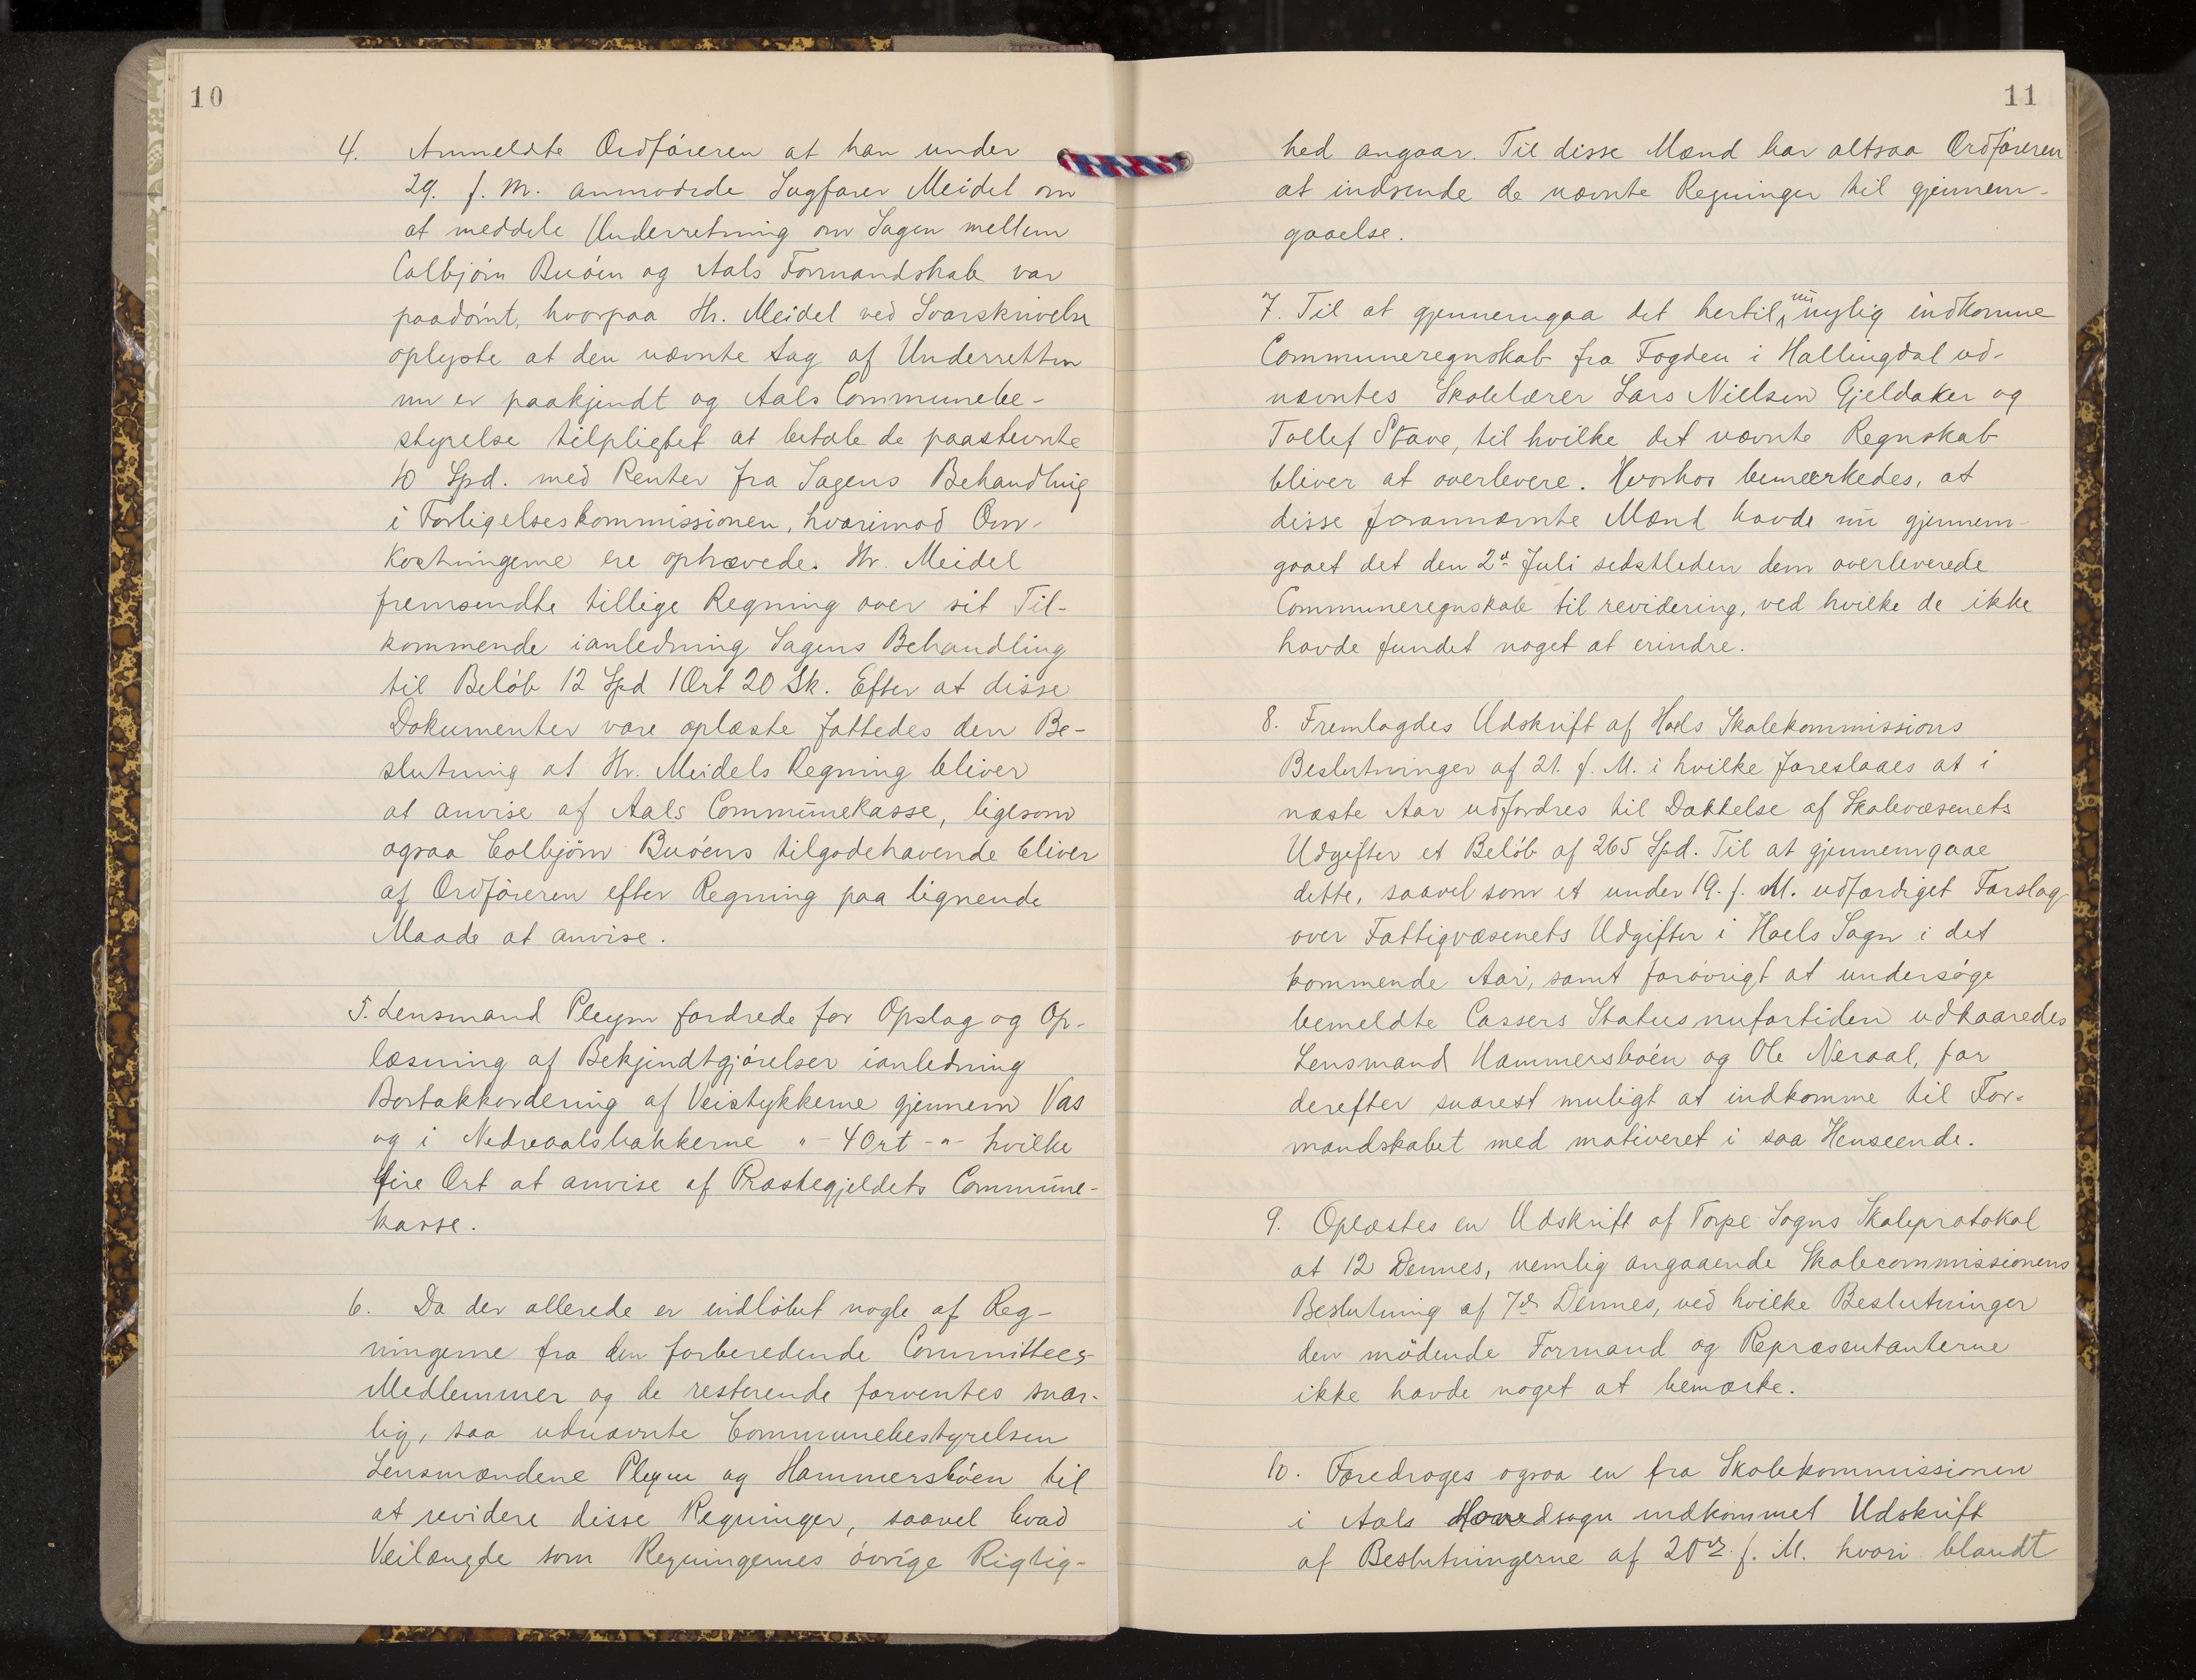 10
4. Anmeldte Ordføreren at han under
29. f. M. anmodede Sagfører Meidel om
at meddele Underretning om Sagen mellem
Colbjörn Buöen og Aals Formandskab var
paadömt, hvorpaa Hr. Meidel ved Svarskrivelse
oplyste at den nævnte Sag af Underretten
nu er paakjendt og Aals Communebe-
styrelse tilpligtet at betale de paastevnte
10 Spd. med Renter fra Sagens Behandling
i Forligelseskommissionen, hvorimod Om-
kostningerne ere ophævede. Hr. Meidel
fremsendte tillige Regning over sit Til-
kommende ianledning Sagens Behandling
til Belöb 12 Spd 1 Ort 20 Sk. Efter at disse
Dokumenter vare oplæste fattedes den Be-
slutning at Hr. Meidels Regning bliver
at anvise af Aals Communekasse, ligesom
ogsaa Colbjörn Buöens tilgodehavende bliver
af Ordföreren efter Regning paa lignende
Maade at anvise.
5. Lensmand Pleym fordrede for Opslag og Op-
læsning af Bekjendtgjörelser ianledning
Bortakkordering af Veistykkerne gjennem Vas
og i Nedreaalsbakkerne " - 4 Ort - " - hvilke
fire Ort at anvise af Præstegjeldets Commune-
kasse.
6. Da der allerede er indlöbet nogle af Reg-
ningerne fra den forberedende Committees
Medlemmer og de resterende forventes snar-
lig, saa udnævnte Communebestyrelsen
Lensmændene Pleym og Hammersböen til
at revidere disse Regninger, saavel hvad
Veilængde som Regningernes övrige Rigtig-
11
hed angaar. Til disse Mænd har altsaa Ordföreren
at indsende de nævnte Regninger til gjennem-
gaaelse.
7. Til at gjennemgaa det hertil nu nylig indkomne
Communeregnskab fra Fogden i Hallingdal ud-
nævntes Skolelærer Lars Nielsen Gjeldaker og
Tollef Stave, til hvilke det nævnte Regnskab
bliver at overlevere. Hvorhos bemærkedes, at
disse forannævnte Mænd havde nu gjennem-
gaaet det den 2d Juli sidstleden dem overleverede
Communeregnskab til revidering, ved hvilke de ikke
havde fundet noget at erindre.
8. Fremlagdes Udskrift af Hols Skolekommissions
Beslutninger af 21. f. M. i hvilke foreslaaes at i
næste Aar udfordres til Dækkelse af Skolevæsenets
Udgifter et Belöb af 265 Spd. Til at gjennemgaae
dette, saavel som et under 19. f. M. udfærdiget Forslag
over Fattigvæsenets Udgifter i Hols Sogn i det
kommende Aar, samt forövrigt at undersöge
bemeldte Cassers Status nufortiden udkaaredes
Lensmand Hammersböen og Ole Neraal, for
derefter snarest muligt at indkomme til For-
mandskabet med motiveret i saa Henseende.
9. Oplæstes en Udskrift af Torpe Sogns Skoleprotokol
at 12 Dennes, nemlig angaaende Skolecommissionens
Beslutning af 7de Dennes, ved hvilke Beslutninger
den mödende Formand og Repræsentanterne
ikke havde noget at bemærke.
10. Foredroges ogsaa en fra Skolekommissionen
i Aals Hovedsogn indkommet Udskrift
af Beslutningerne af 20de f. M. hvori blandt